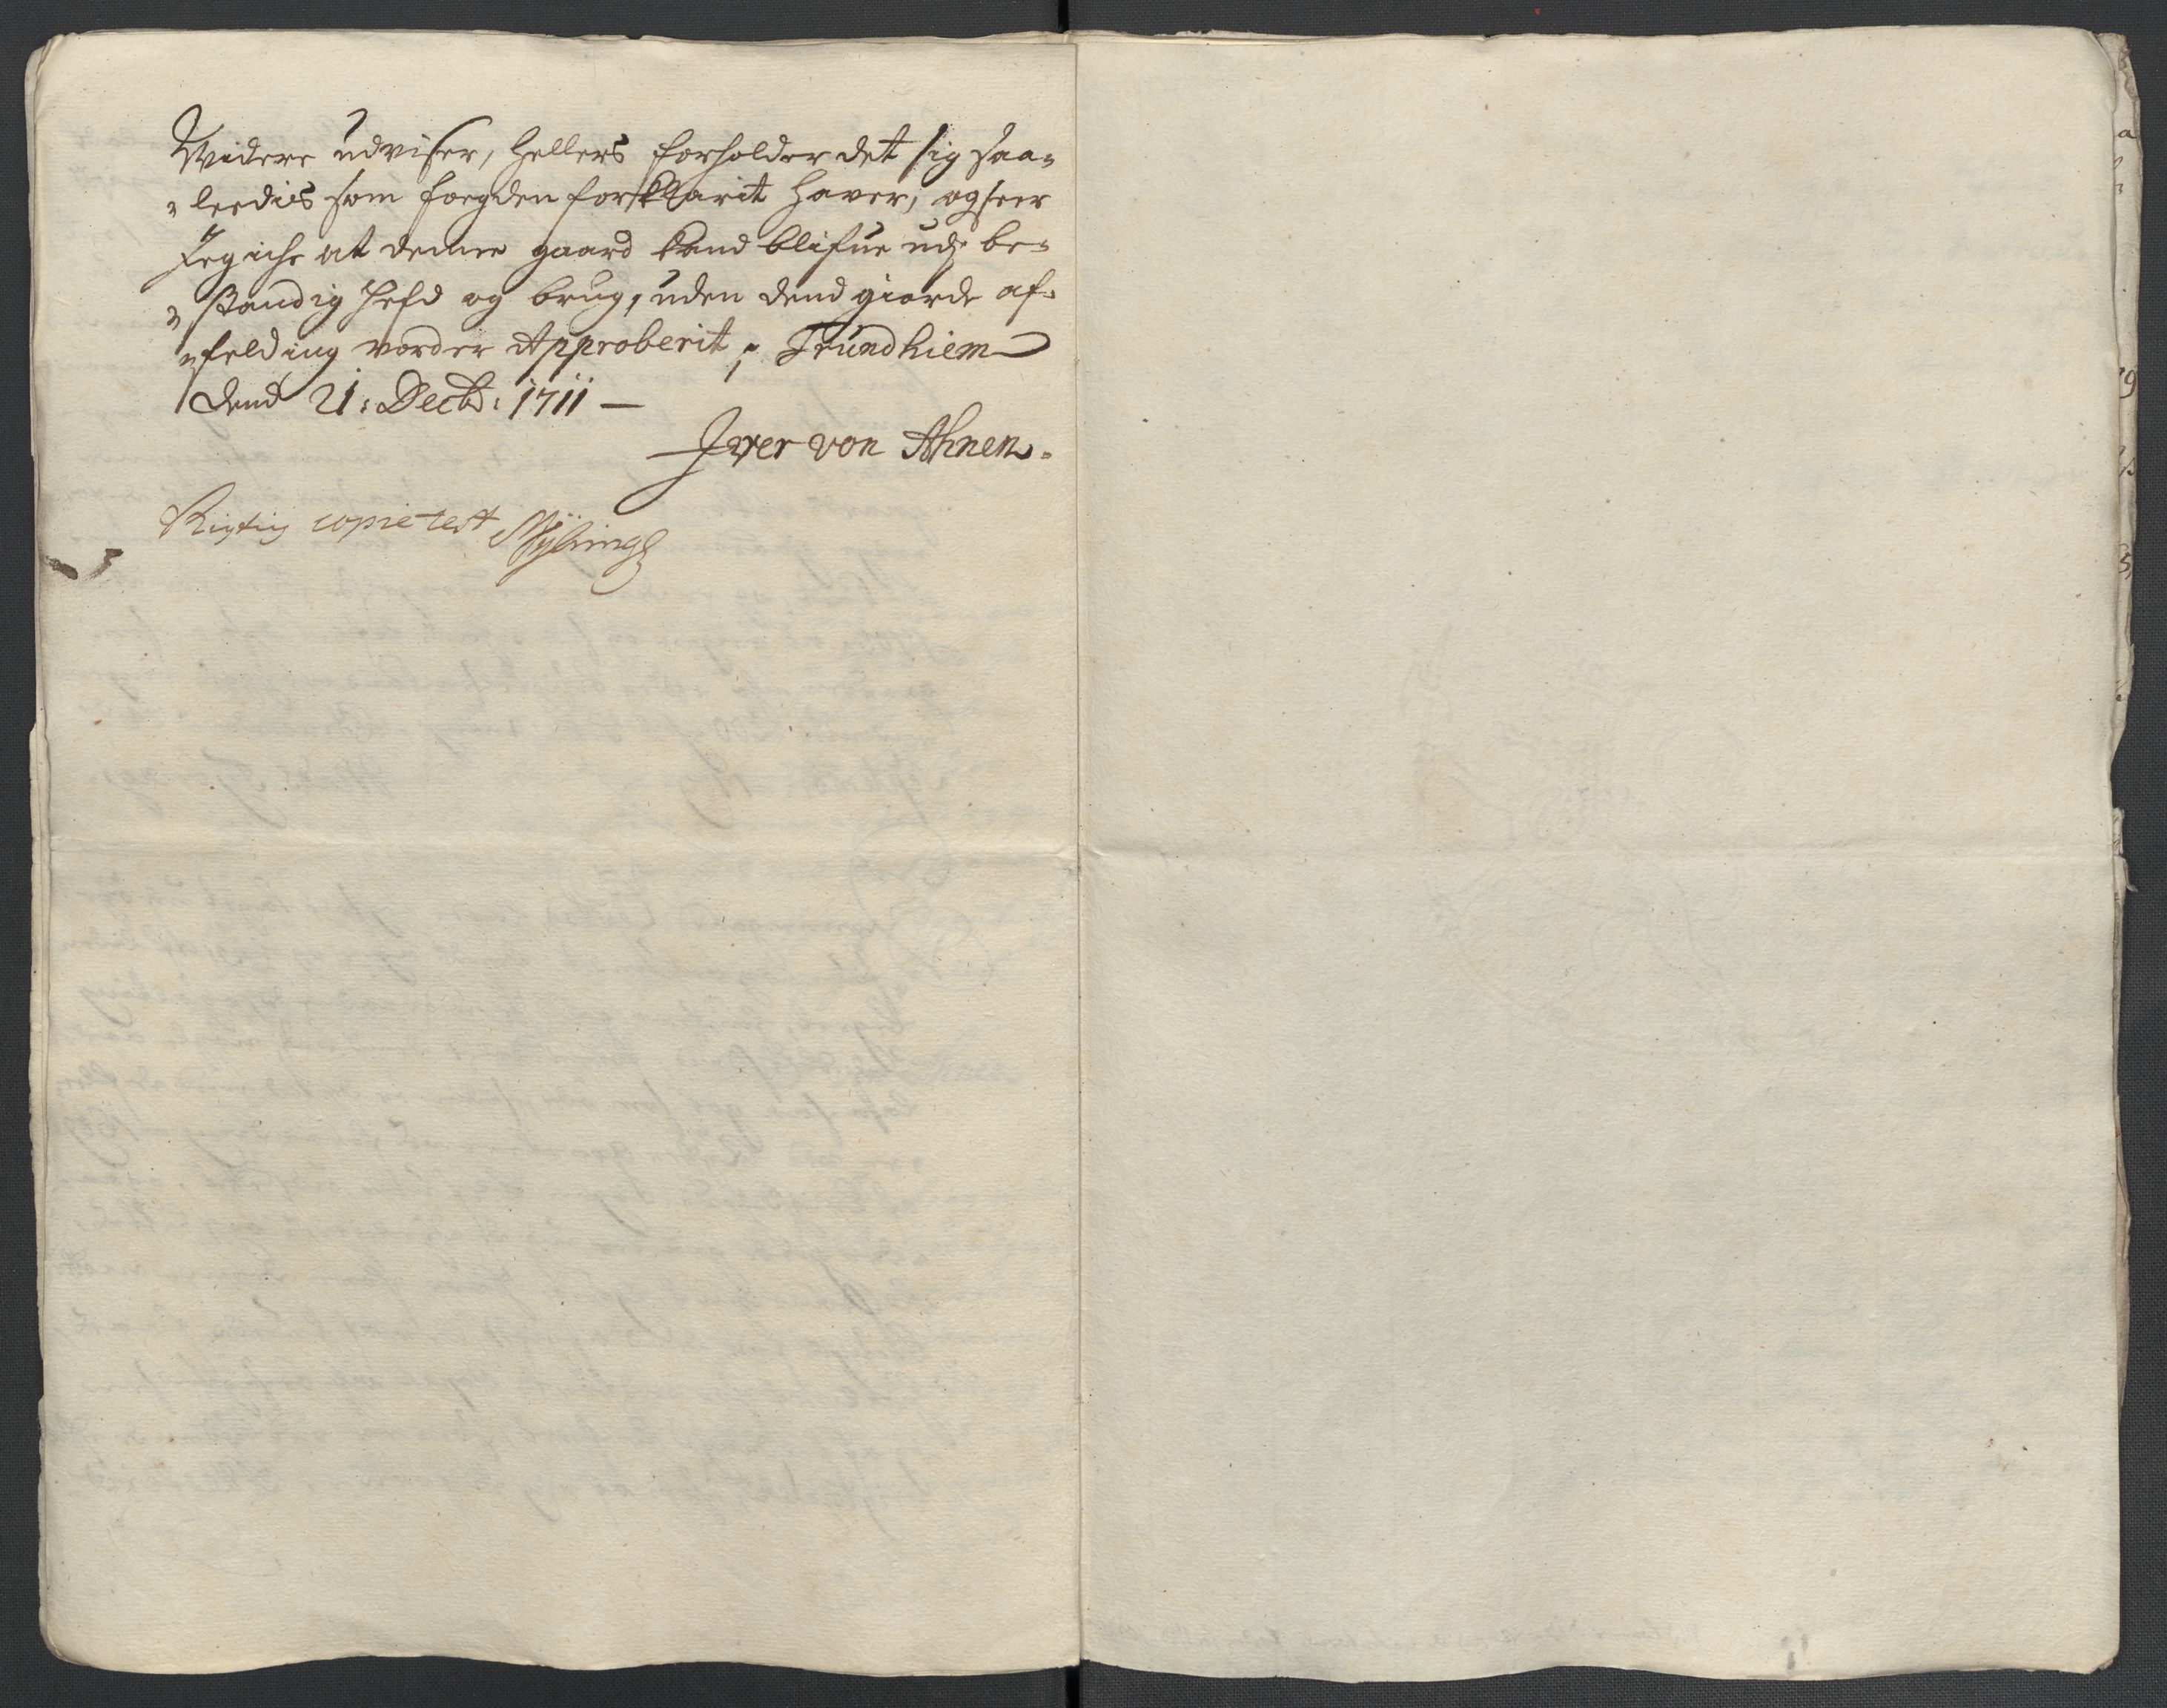 Widere udviser, hellers forholder det sig saa=
=leedies som foegden forklarit haver, og seer
Jeg iche at denne gaard kand blifue udj be=
=standig hefd og brug, uden dend giorde af=
=felding vorder Approberit, Trundhiem
dend 21: Decbr: 1711 —
Jwer von Ahnen.
Rigtig copie test